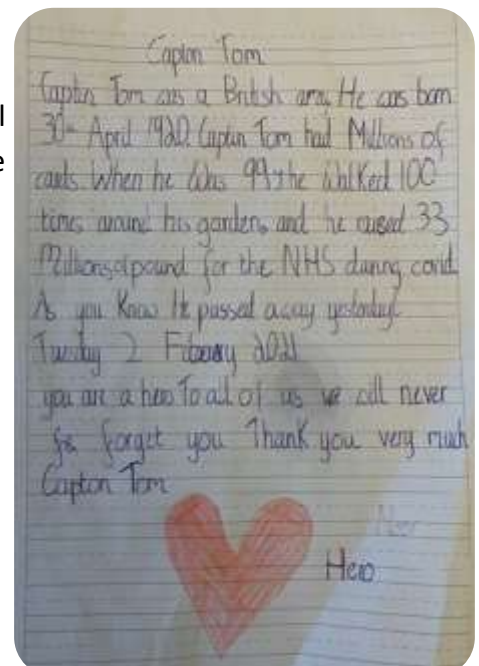 Capton Tom
Captin Tom was a British army He was born
30th April 1920. Captin Tom had Millions of
cards When he Was 99 he Walked 100
times around his garden, and he raised 33
Millions of pound for the NHS during covid.
As you Know He passed away yesterday!
Tuesday 2 2021
you are a hero To all of us we will never
forget you Thank you very much
Capton Tom
Hero